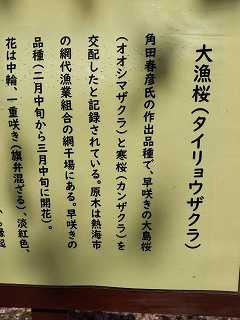 大漁桜(タイリョウザクラ)
角田春彦氏の作出品種で、早咲きの大島桜
(オオシマザクラ)と寒桜(カンザクラ)を
交配したと記録されている。原木は熱海市
の網代漁業組合の網干場にある。早咲きの
品種(二月中旬から三月中旬に開花)。
花は中輪、一重咲き(旗弁混ざる)、淡紅色、